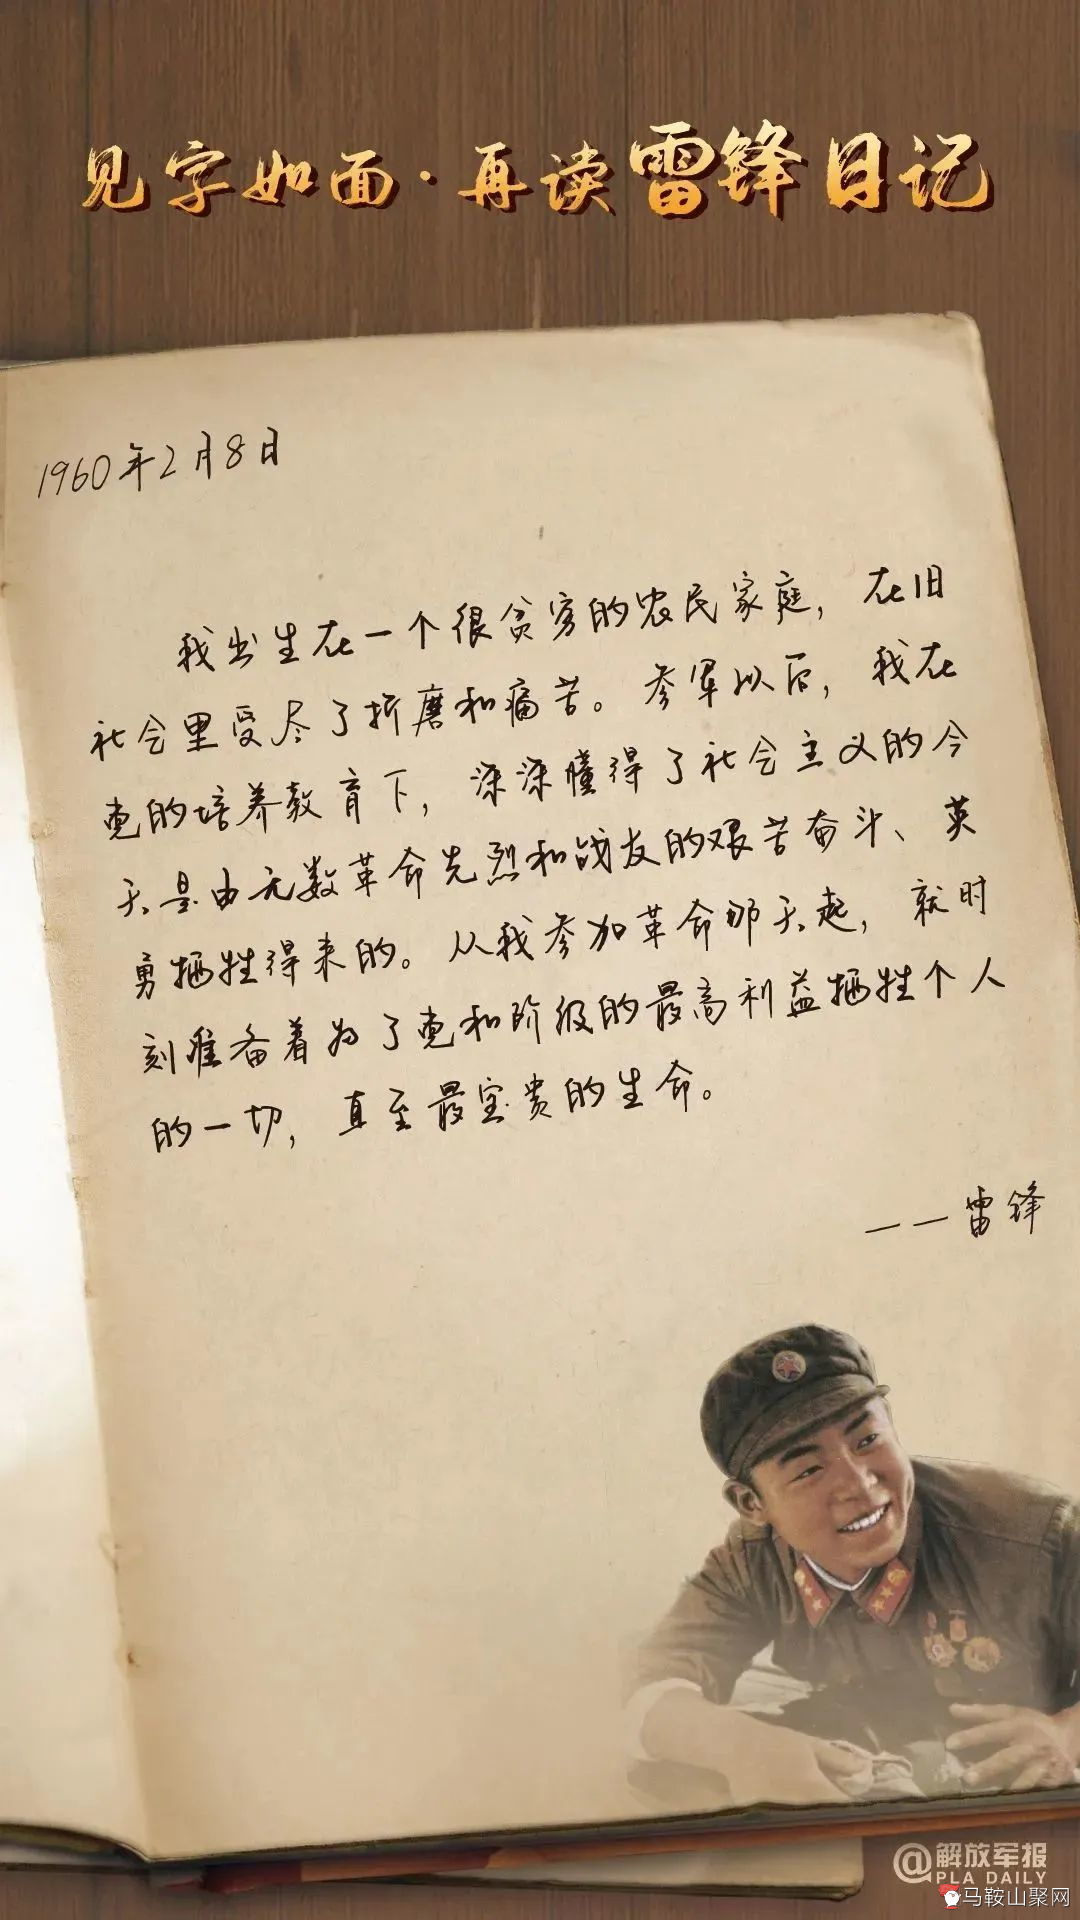 见字如面·再读雷锋日记
1960年2月8日
我出生在一个很贫穷的农民家庭，在旧
社会里受尽了折磨和痛苦。参军以后，我在
党的培养教育下，深深懂得了社会主义的今
天是由无数革命先烈和战友的艰苦奋斗、英
勇牺牲得来的。从我参加革命那天起，就时
刻准备着为了党和阶级的最高利益牺牲个人
的一切，直至最宝贵的生命。
——雷锋
@解放军报
PLA DAILY
马鞍山聚网